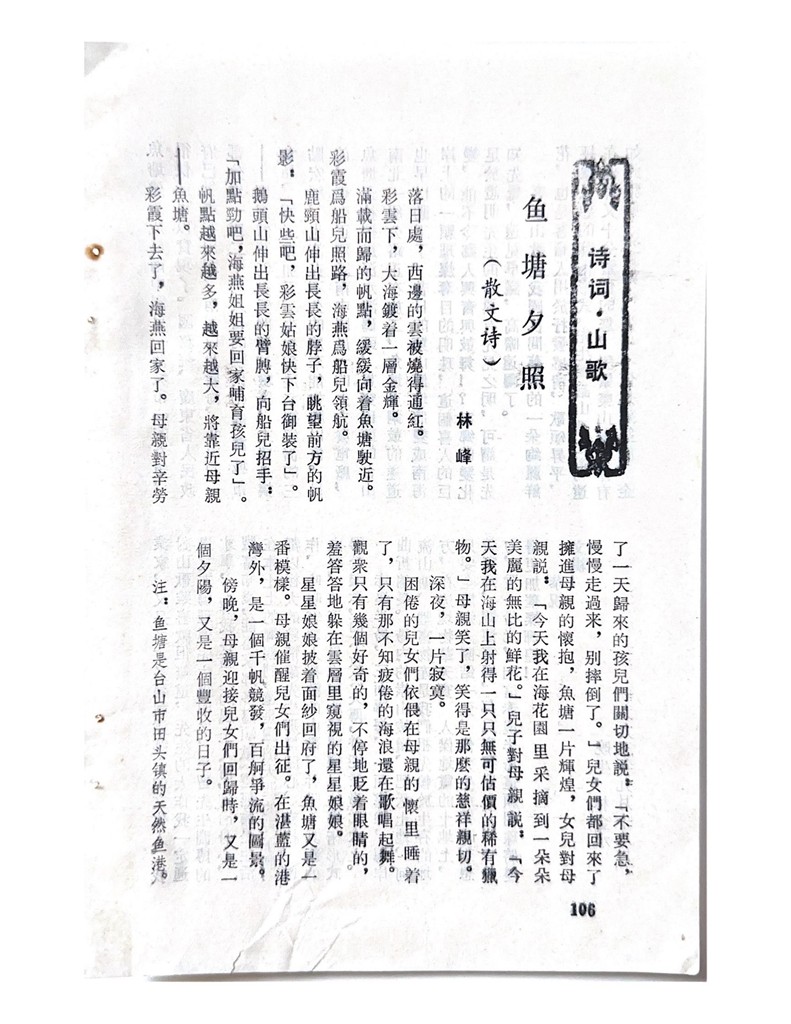 诗词·山歌
鱼塘夕照
（散文诗）
林峰
落日處，西邊的雲被燒得通紅。
彩雲下，大海鍍着一層金輝。
滿載而歸的帆點，緩緩向着魚塘駛近。
彩霞爲船兒照路，海燕爲船兒領航。
鹿頸山伸出長長的脖子，眺望前方的帆
影：「快些吧，彩雲姑娘快下台御裝了」。
鵝頭山伸出長長的臂膊，向船兒招手：
「加點勁吧，海燕姐姐要回家哺育孩兒了」。
帆點越來越多，越來越大，將靠近母親
——魚塘。
彩霞下去了，海燕回家了。母親對辛勞
了一天歸來的孩兒們關切地説：「不要急，
慢慢走過來，别摔倒了。」兒女們都回來了
擁進母親的懷抱，魚塘一片輝煌，女兒對母
親説：「今天我在海花園里采摘到一朵朵
美麗的無比的鮮花。」兒子對母親説：「今
天我在海山上射得一只只無可估價的稀有獵
物。」母親笑了，笑得是那麽的慈祥親切。
深夜，一片寂寞。
困倦的兒女們依偎在母親的懷里睡着
了，只有那不知疲倦的海浪還在歌唱起舞。
觀衆只有幾個好奇的，不停地眨着眼睛的，
羞答答地躲在雲層里窺視的星星娘娘。
星星娘娘披着面紗回府了，魚塘又是一
番模樣。母親催醒兒女們出征。在湛藍的港
灣外，是一個千帆競發，百舸爭流的圖景。
傍晚，母親迎接兒女們回歸時，又是一
個夕陽，又是一個豐收的日子。
注：鱼塘是台山市田头镇的天然鱼港。
106